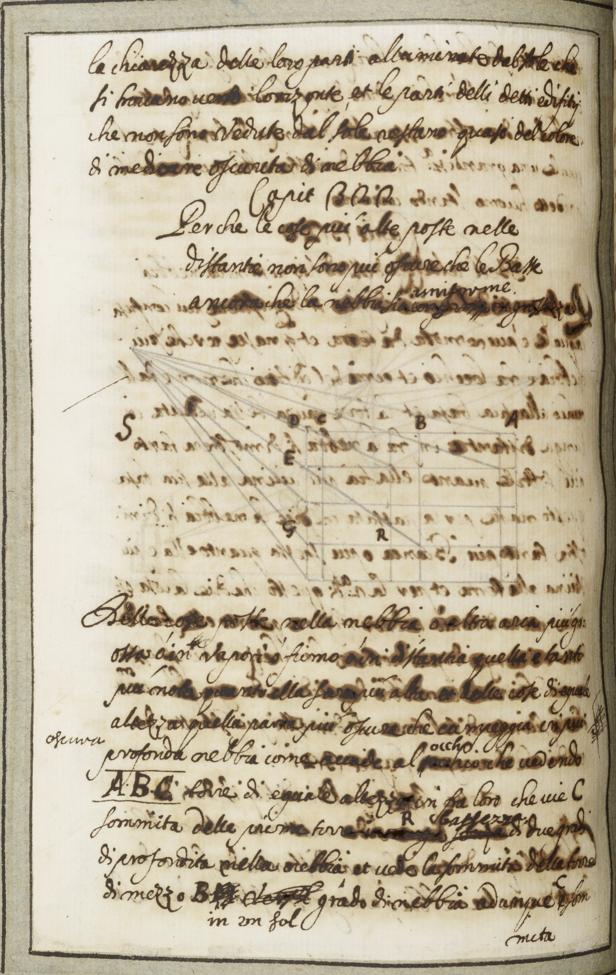 la chiarezza delle loro parti alluminate dal sole che
si trovano verso l'orizonte, et le parti delli detti edifitij
che non sono vedute dal sole restano quasi del colore
di mediocre oscurita di nebbia
Capit
Per che le cose più alte poste nelle
distantie non sono piu oscure che le Basse
ancora che la nebbia sia uniforme in grossezza
S D C B A
E
G R
Delle cose poste nella nebbia o altra aria più gr
ossa o in vapori o fumo o in distantia quella e tanto
più nota quanto ella sara più alta et delle cose di equale
altezza quella parra più oscura che campeggia in più
oscura
profonda nebbia come accade al occhio che vedendo
A B C torre di equale altezza in fra loro che vie C
sommita della prima torre R bassezza di due gradi
di profondita nella nebbia et vede la sommità della torre
di mezzo B grado di nebbia adunque C som
in un sol
mita